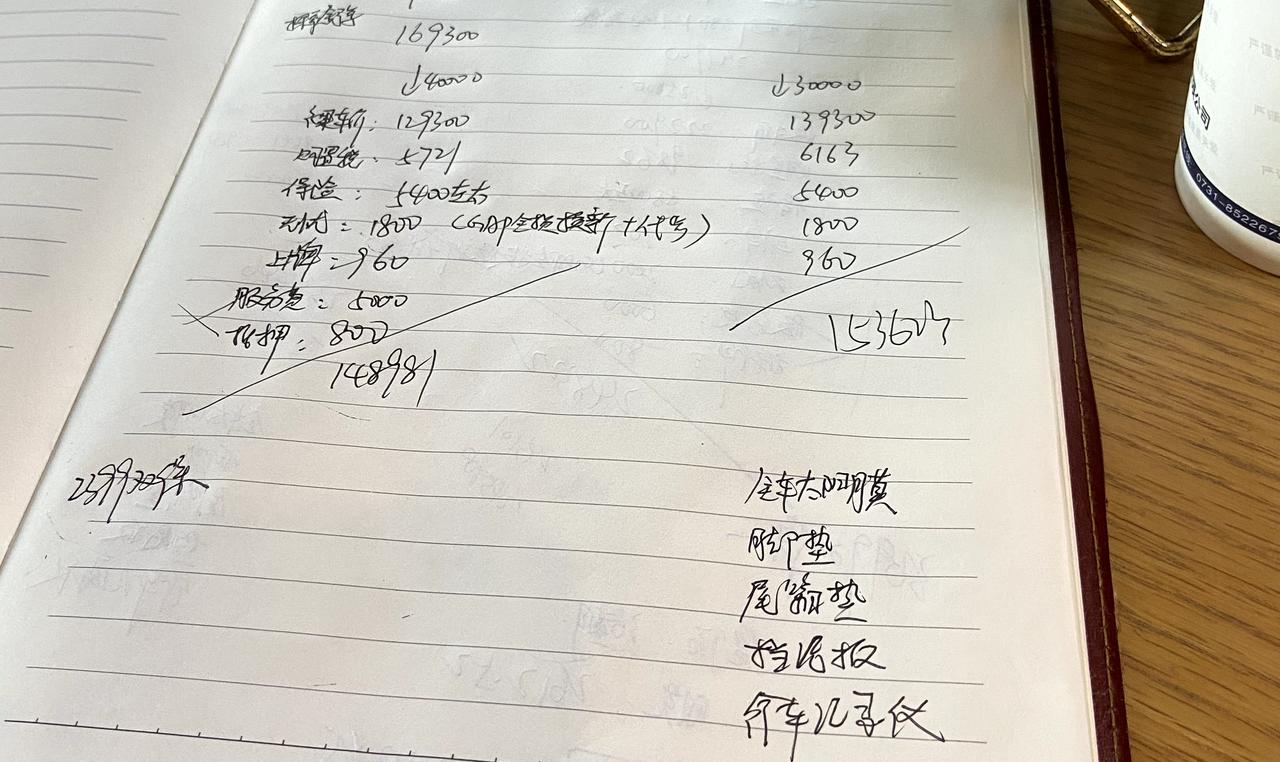 169300
↓40000 ↓30000
裸车价：129300 139300
购置税：5721 6163
保险：5400左右 5400
无忧：1800（GAP全损换新+代步） 1800
上牌：960 960
服务费：5000
抵押：800
148981
全车太阳膜
脚垫
尾箱垫
挡泥板
行车记录仪
公司
0731-852267